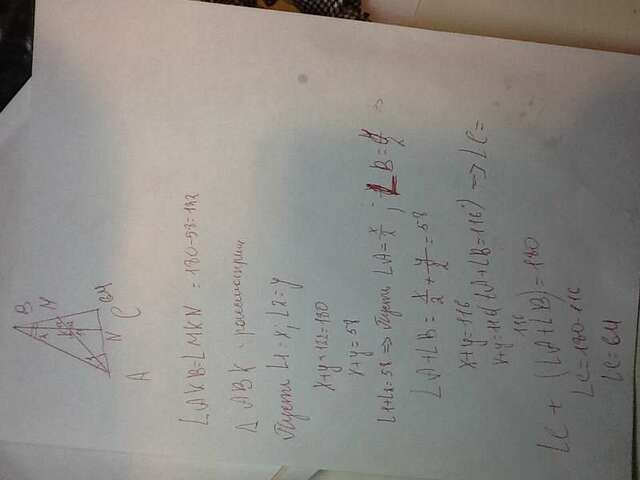 B
M
64
N
C
A
∠AKB=∠MKN = 180-58=122
△ABK - рассмотрим
Пусть ∠1=x, ∠2=y
x+y+122=180
x+y=58
∠1+∠2=58 => Пусть ∠A=x/2 ; ∠B=y/2 =>
∠A+∠B=x/2+y/2=58
x+y=116
x+y=116(∠A+∠B=116°) => ∠C=
116
∠C + (∠A+∠B)=180
∠C=180-116
∠C=64